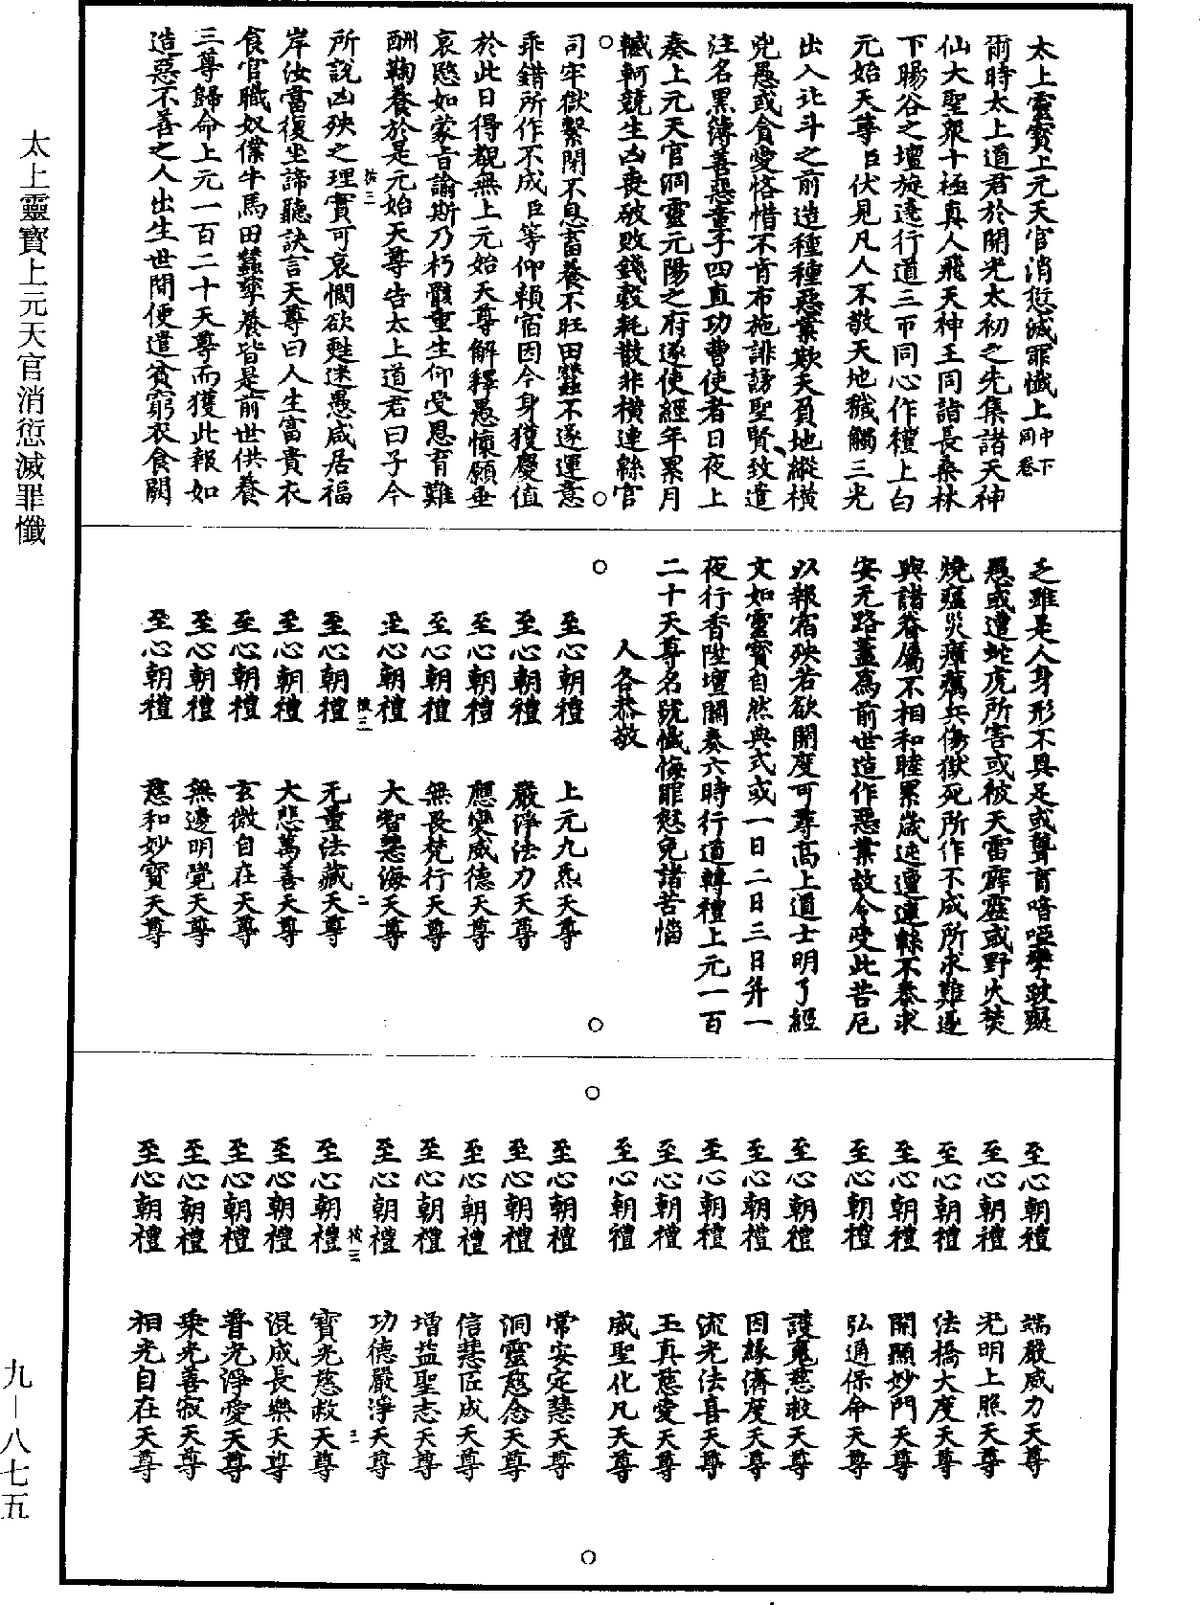 太上靈寶上元天官消愆滅罪懺上 中下同卷
爾時太上道君於開光太初之先集諸天神
仙大聖眾十極真人飛天神王同詣長桑林
下暘谷之壇旋遶行道三帀同心作禮上白
元始天尊臣伏見凡人不敬天地穢觸三光
出入北斗之前造種種惡業欺天負地縱橫
兇愚或貪愛恡惜不肯布施誹謗聖賢致遣
注名黑簿善惡童子四直功曹使者日夜上
奏上元天官洞靈元陽之府遂使經年累月
轗軻競生凶喪破敗錢穀耗散非橫連緜官
司牢獄繫閉不息畜養不旺田蠶不遂運意
乖錯所作不成臣等仰賴宿因今身獲慶值
於此日得覩無上元始天尊解釋愚懷願垂
哀愍如蒙旨諭斯乃朽骸重生仰受恩育難
酬鞠養於是元始天尊告太上道君曰子今
所說凶殃之理實可哀憫欲甦迷愚咸居福
岸汝當復坐諦聽訣言天尊曰人生富貴衣
食官職奴僕牛馬田蠶孳養皆是前世供養
三尊歸命上元一百二十天尊而獲此報如
造惡不善之人出生世間便遣貧窮衣食闕
乏雖是人身形不具足或聾盲喑啞攣跛癡
愚或遭蛇虎所害或被天雷霹靂或野火焚
燒瘟災瘴癘兵傷獄死所作不成所求難遂
與諸眷屬不相和睦累歲迍邅連緜不泰求
安无路蓋為前世造作惡業故令受此苦厄
以報宿殃若欲開度可尋高上道士明了經
文如靈寶自然典式或一日二日三日并一
夜行香陞壇關奏六時行道轉禮上元一百
二十天尊名號懺悔罪愆免諸苦惱
人各恭敬
至心朝禮 上元九炁天尊
至心朝禮 嚴淨法力天尊
至心朝禮 應變威德天尊
至心朝禮 無畏梵行天尊
至心朝禮 大智慧海天尊
至心朝禮 无量法藏天尊
至心朝禮 大悲萬善天尊
至心朝禮 玄微自在天尊
至心朝禮 無邊明覺天尊
至心朝禮 慈和妙寶天尊
至心朝禮 端嚴威力天尊
至心朝禮 光明上照天尊
至心朝禮 法橋大度天尊
至心朝禮 開闡妙門天尊
至心朝禮 弘通保命天尊
至心朝禮 護魂慈救天尊
至心朝禮 因緣濟度天尊
至心朝禮 流光法喜天尊
至心朝禮 玉真慈愛天尊
至心朝禮 威聖化凡天尊
至心朝禮 常安定慧天尊
至心朝禮 洞靈慈念天尊
至心朝禮 信慧匠成天尊
至心朝禮 增益聖志天尊
至心朝禮 功德嚴淨天尊
至心朝禮 寶光慈救天尊
至心朝禮 混成長樂天尊
至心朝禮 普光淨愛天尊
至心朝禮 乘光善寂天尊
至心朝禮 相光自在天尊
太上靈寶上元天官消愆滅罪懺
九—八七五